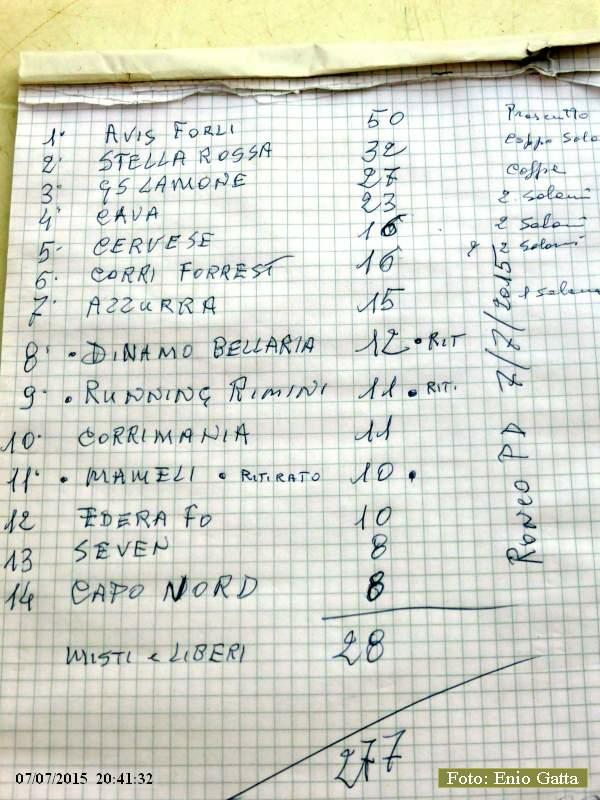 1° AVIS FORLI 50 Proscutto
2° STELLA ROSSA 32 Coppa
3° GS LAMONE 27 Coppa
4° CAVA 23 2 Salami
5° CERVESE 16 2 Salami
6° CORRI FORREST 16 2 Salami
7° AZZURRA 15 1
8° • DINAMO BELLARIA 12 • RIT
9° • RUNNING RIMINI 11 • RIT.
10° CORRIMANIA 11
11° • MAMELI • RITIRATO 10 •
12 EDERA FO 10
13 SEVEN 8
14 CAPO NORD 8
MISTI e LIBERI 28
277
RONCO PD 7/7/2015
07/07/2015 20:41:32
Foto: Enio Gatta